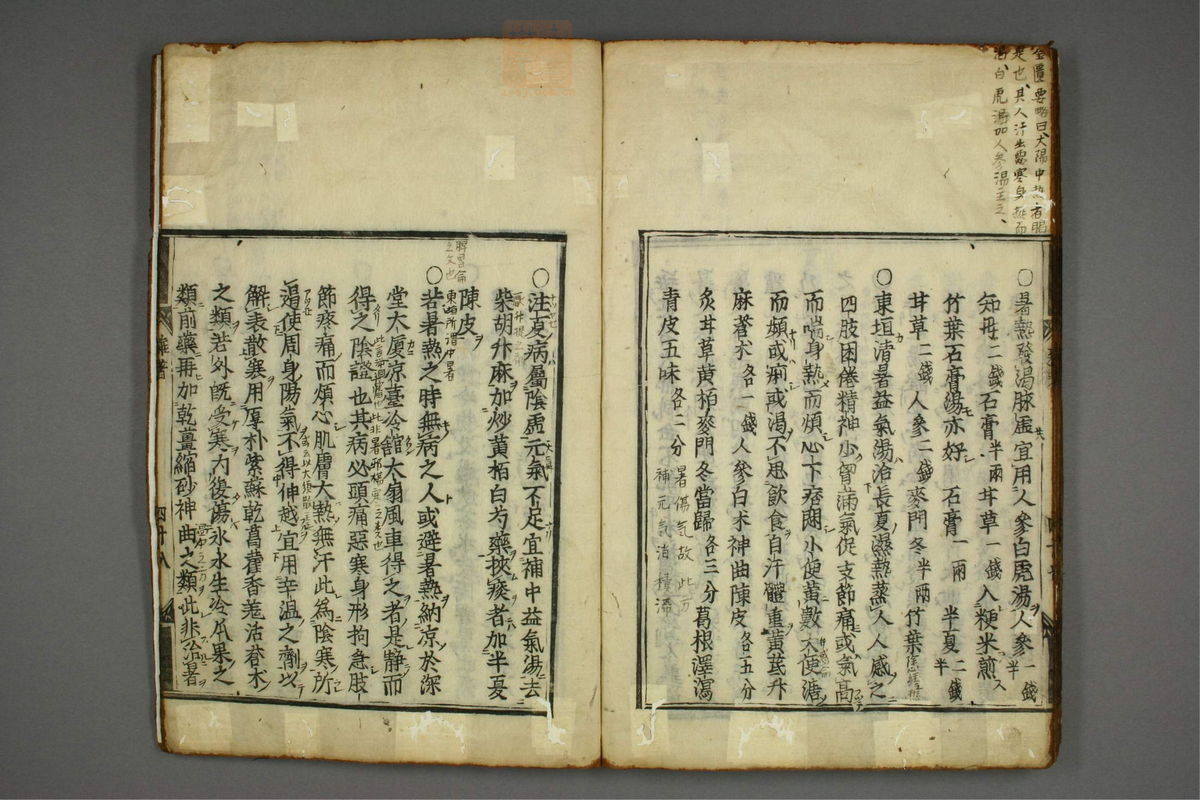 金匱要略曰太陽中熱者暍
是也其人汗出惡寒身熱而
渴白虎湯加人參湯主之
○暑熱發渴脉虛宜用人參白虎湯人參一錢半
知母二錢石膏半兩甘草一錢入粳米煎
竹葉石膏湯亦好 石膏一兩 半夏二錢半
甘草二錢 人參二錢 麥門冬半兩 竹葉
○東垣清暑益氣湯治長夏濕熱蒸人人感之
四肢困倦精神少胷滿氣促支節痛或氣高
而喘身熱而煩心下痞悶小便黃數大便溏
而頻或痢或渴不思飲食自汗體重黃芪升
麻蒼朮各一錢人參白朮神曲陳皮各五分
炙甘草黃栢麥門冬當歸各三分葛根澤瀉
青皮五味各二分
暑傷氣故此方
補元気消積滯
○注夏病屬陰虛元氣不足宜補中益氣湯去
柴胡升麻加炒黃栢白芍藥挾痰者加半夏
陳皮
脾胃論
之文也
東垣所謂中暑
○若暑熱之時無病之人或避暑熱納凉於深
堂大厦凉臺冷舘大扇風車得之者是静而
得之陰證也其病必頭痛惡寒身形拘急肢
節疼痛而煩心肌膚大熱無汗此為陰寒所
遏使周身陽氣不得伸越宜用辛温之劑以
解表散寒用厚朴紫蘇乾葛藿香羗活蒼朮
之類若外旣受寒內復傷氷水生冷瓜果之
類前藥再加乾薑縮砂神曲之類此非治暑
四十八